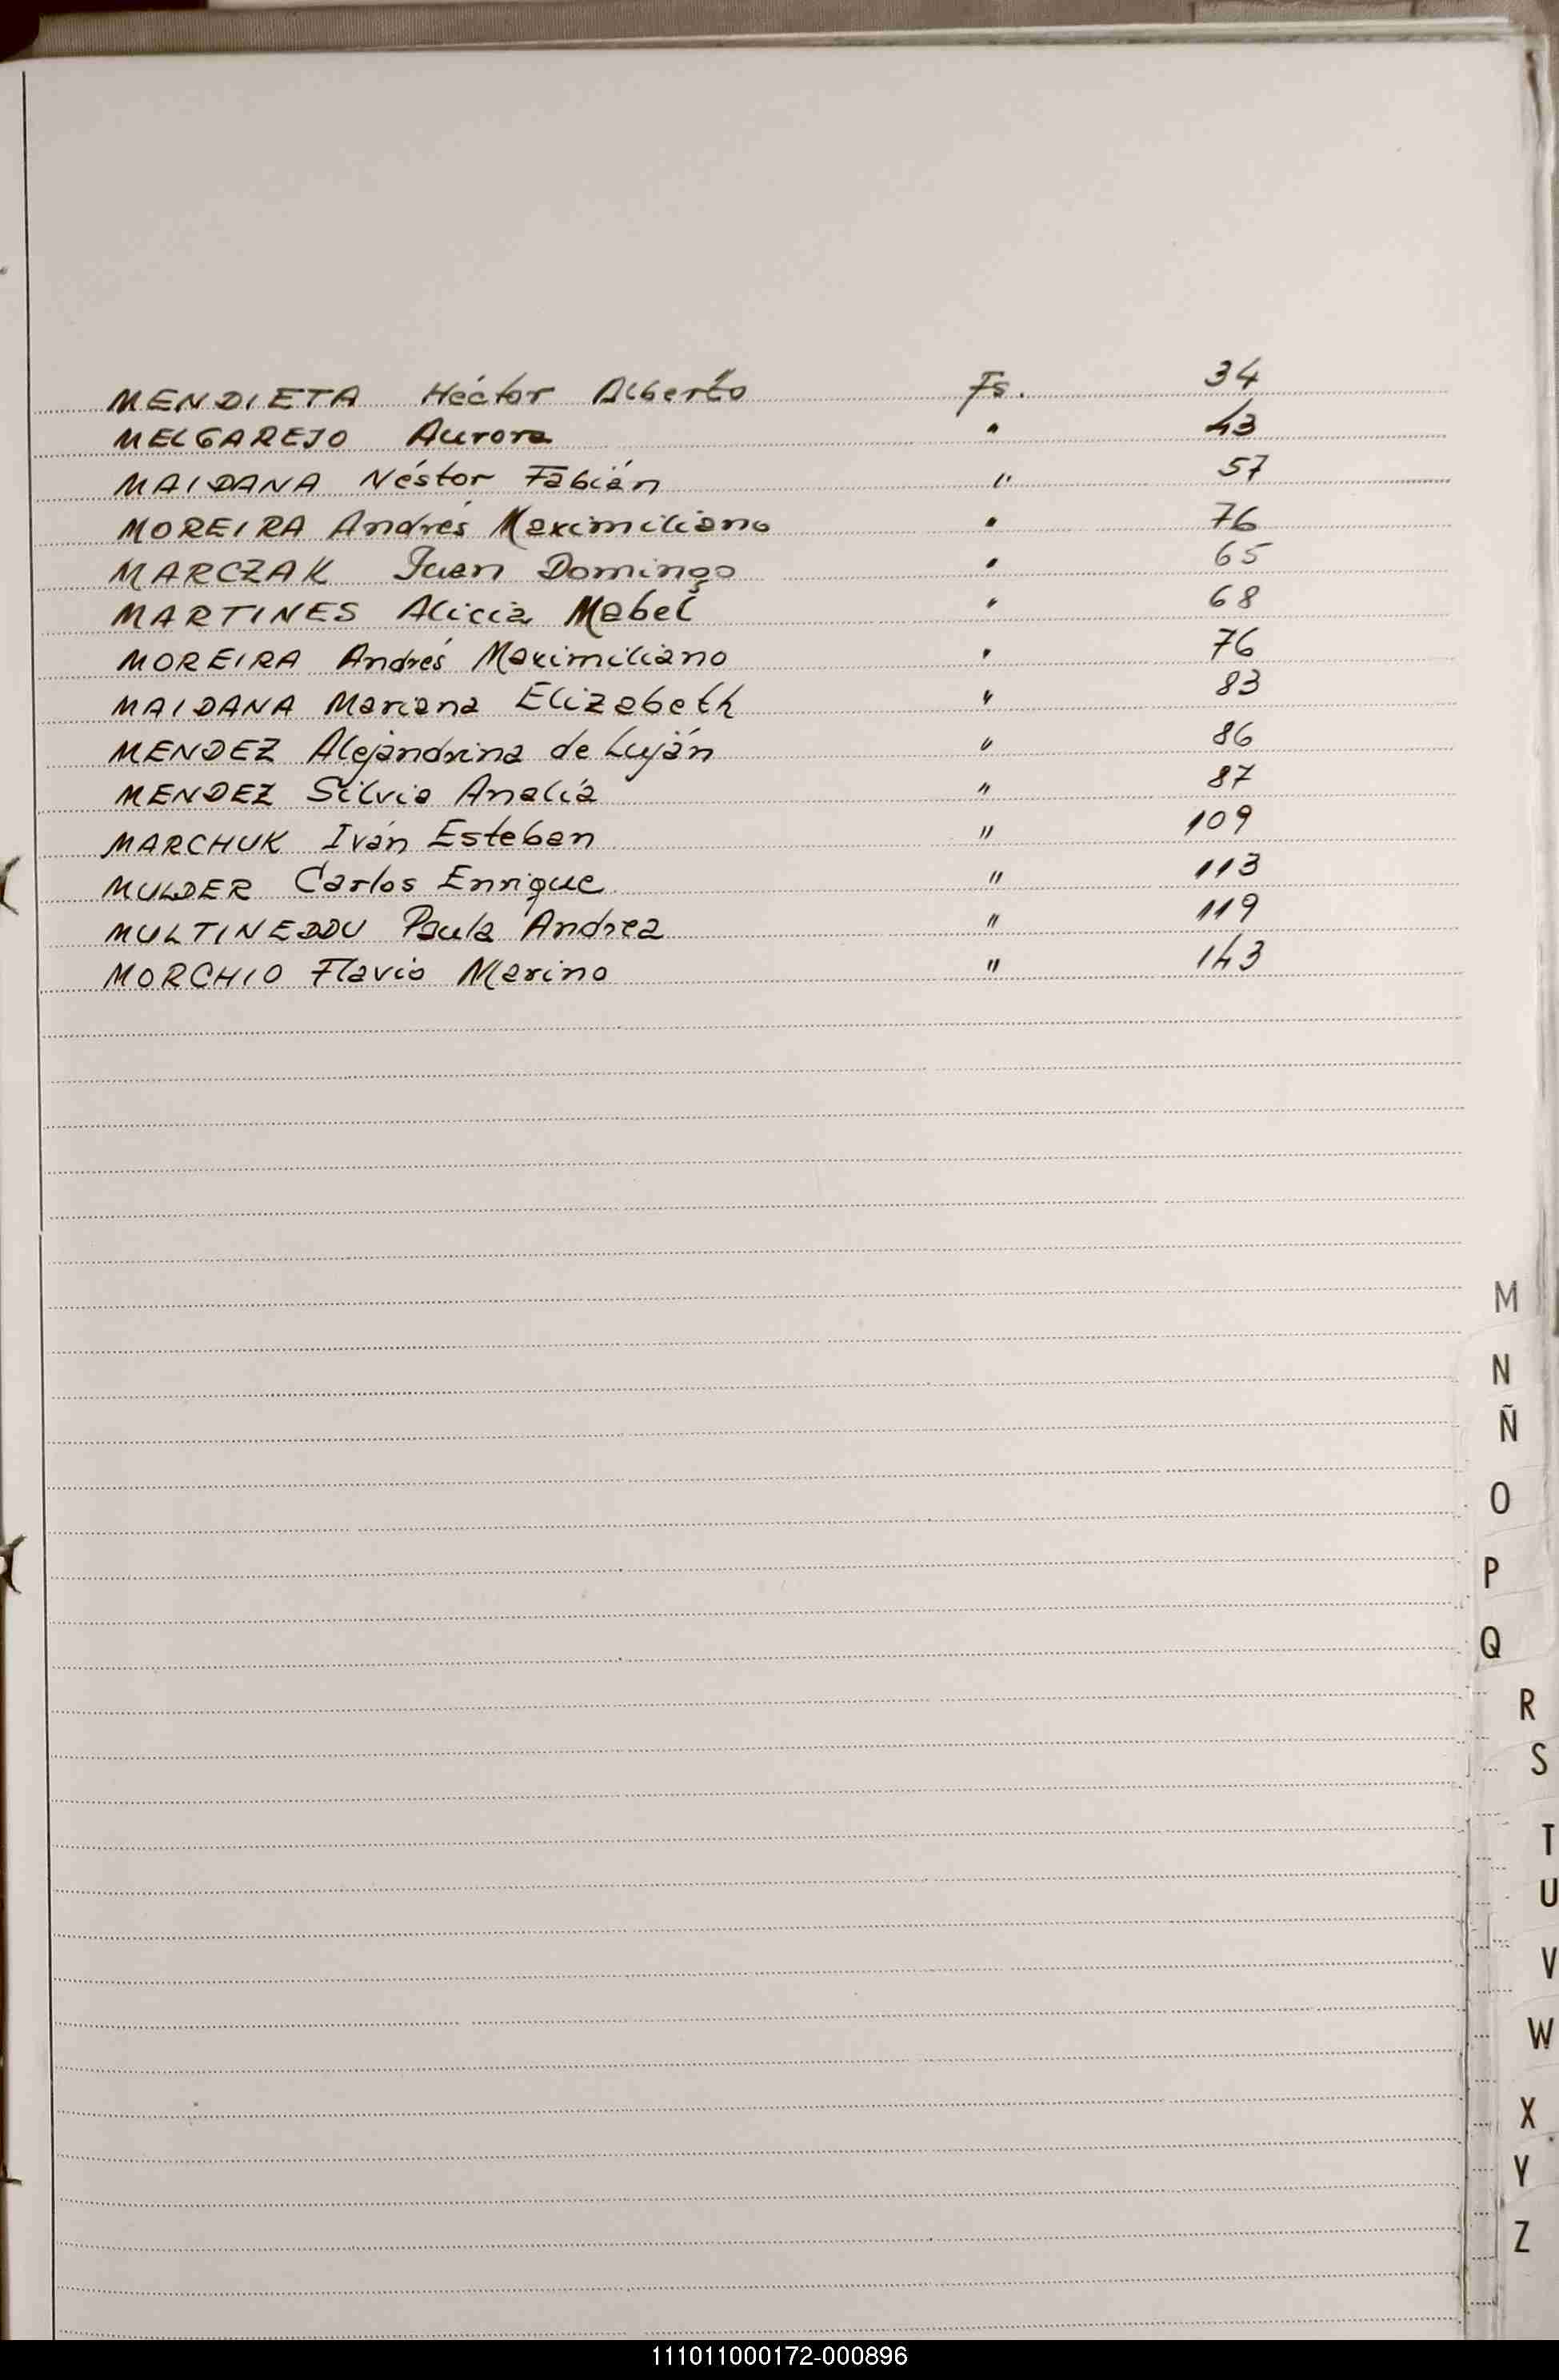 MENDIETA Héctor Alberto Fs. 34
MELGAREJO Aurora " 43
MAIDANA Néstor Fabián " 57
MOREIRA Andrés Maximiliano " 76
MARCZAK Juan Domingo " 65
MARTINES Alicia Mabel " 68
MOREIRA Andrés Maximiliano " 76
MAIDANA Mariana Elizabeth " 83
MENDEZ Alejandrina de Luján " 86
MENDEZ Silvia Analía " 87
MARCHUK Iván Esteban " 109
MULDER Carlos Enrique " 113
MULTINEDDU Paula Andrea " 119
MORCHIO Flavio Marino " 143
M
N
Ñ
O
P
Q
R
S
T
U
V
W
X
Y
Z
111011000172-000896